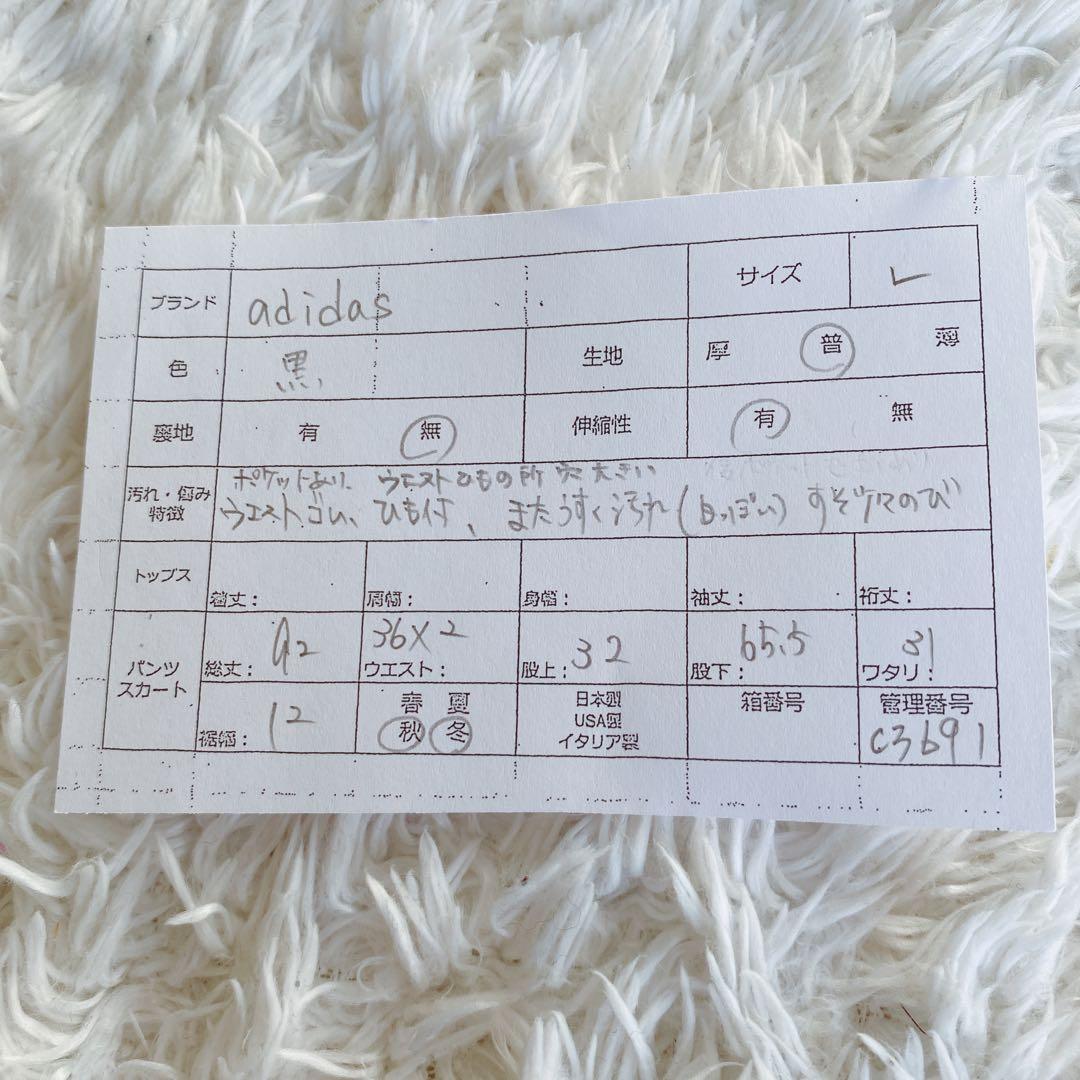 ブランド adidas サイズ
色 黒 生地 厚 普 薄
裏地 有 無 伸縮性 有 無
汚れ・傷み
特徴
ポケットあり、ウエストひもの所 穴大きい
ウエストゴム、ひも付、またうすく汚れ(白っぽい) すそゴムのび
トップス 着丈: 肩幅: 身幅: 袖丈: 裄丈:
パンツ
スカート
総丈: 92 36×2 ウエスト: 股上: 32 65.5 股下: 31 ワタリ:
裾幅: 12
春 夏
秋 冬
日本製
USA製
イタリア製
箱番号
管理番号
C3691